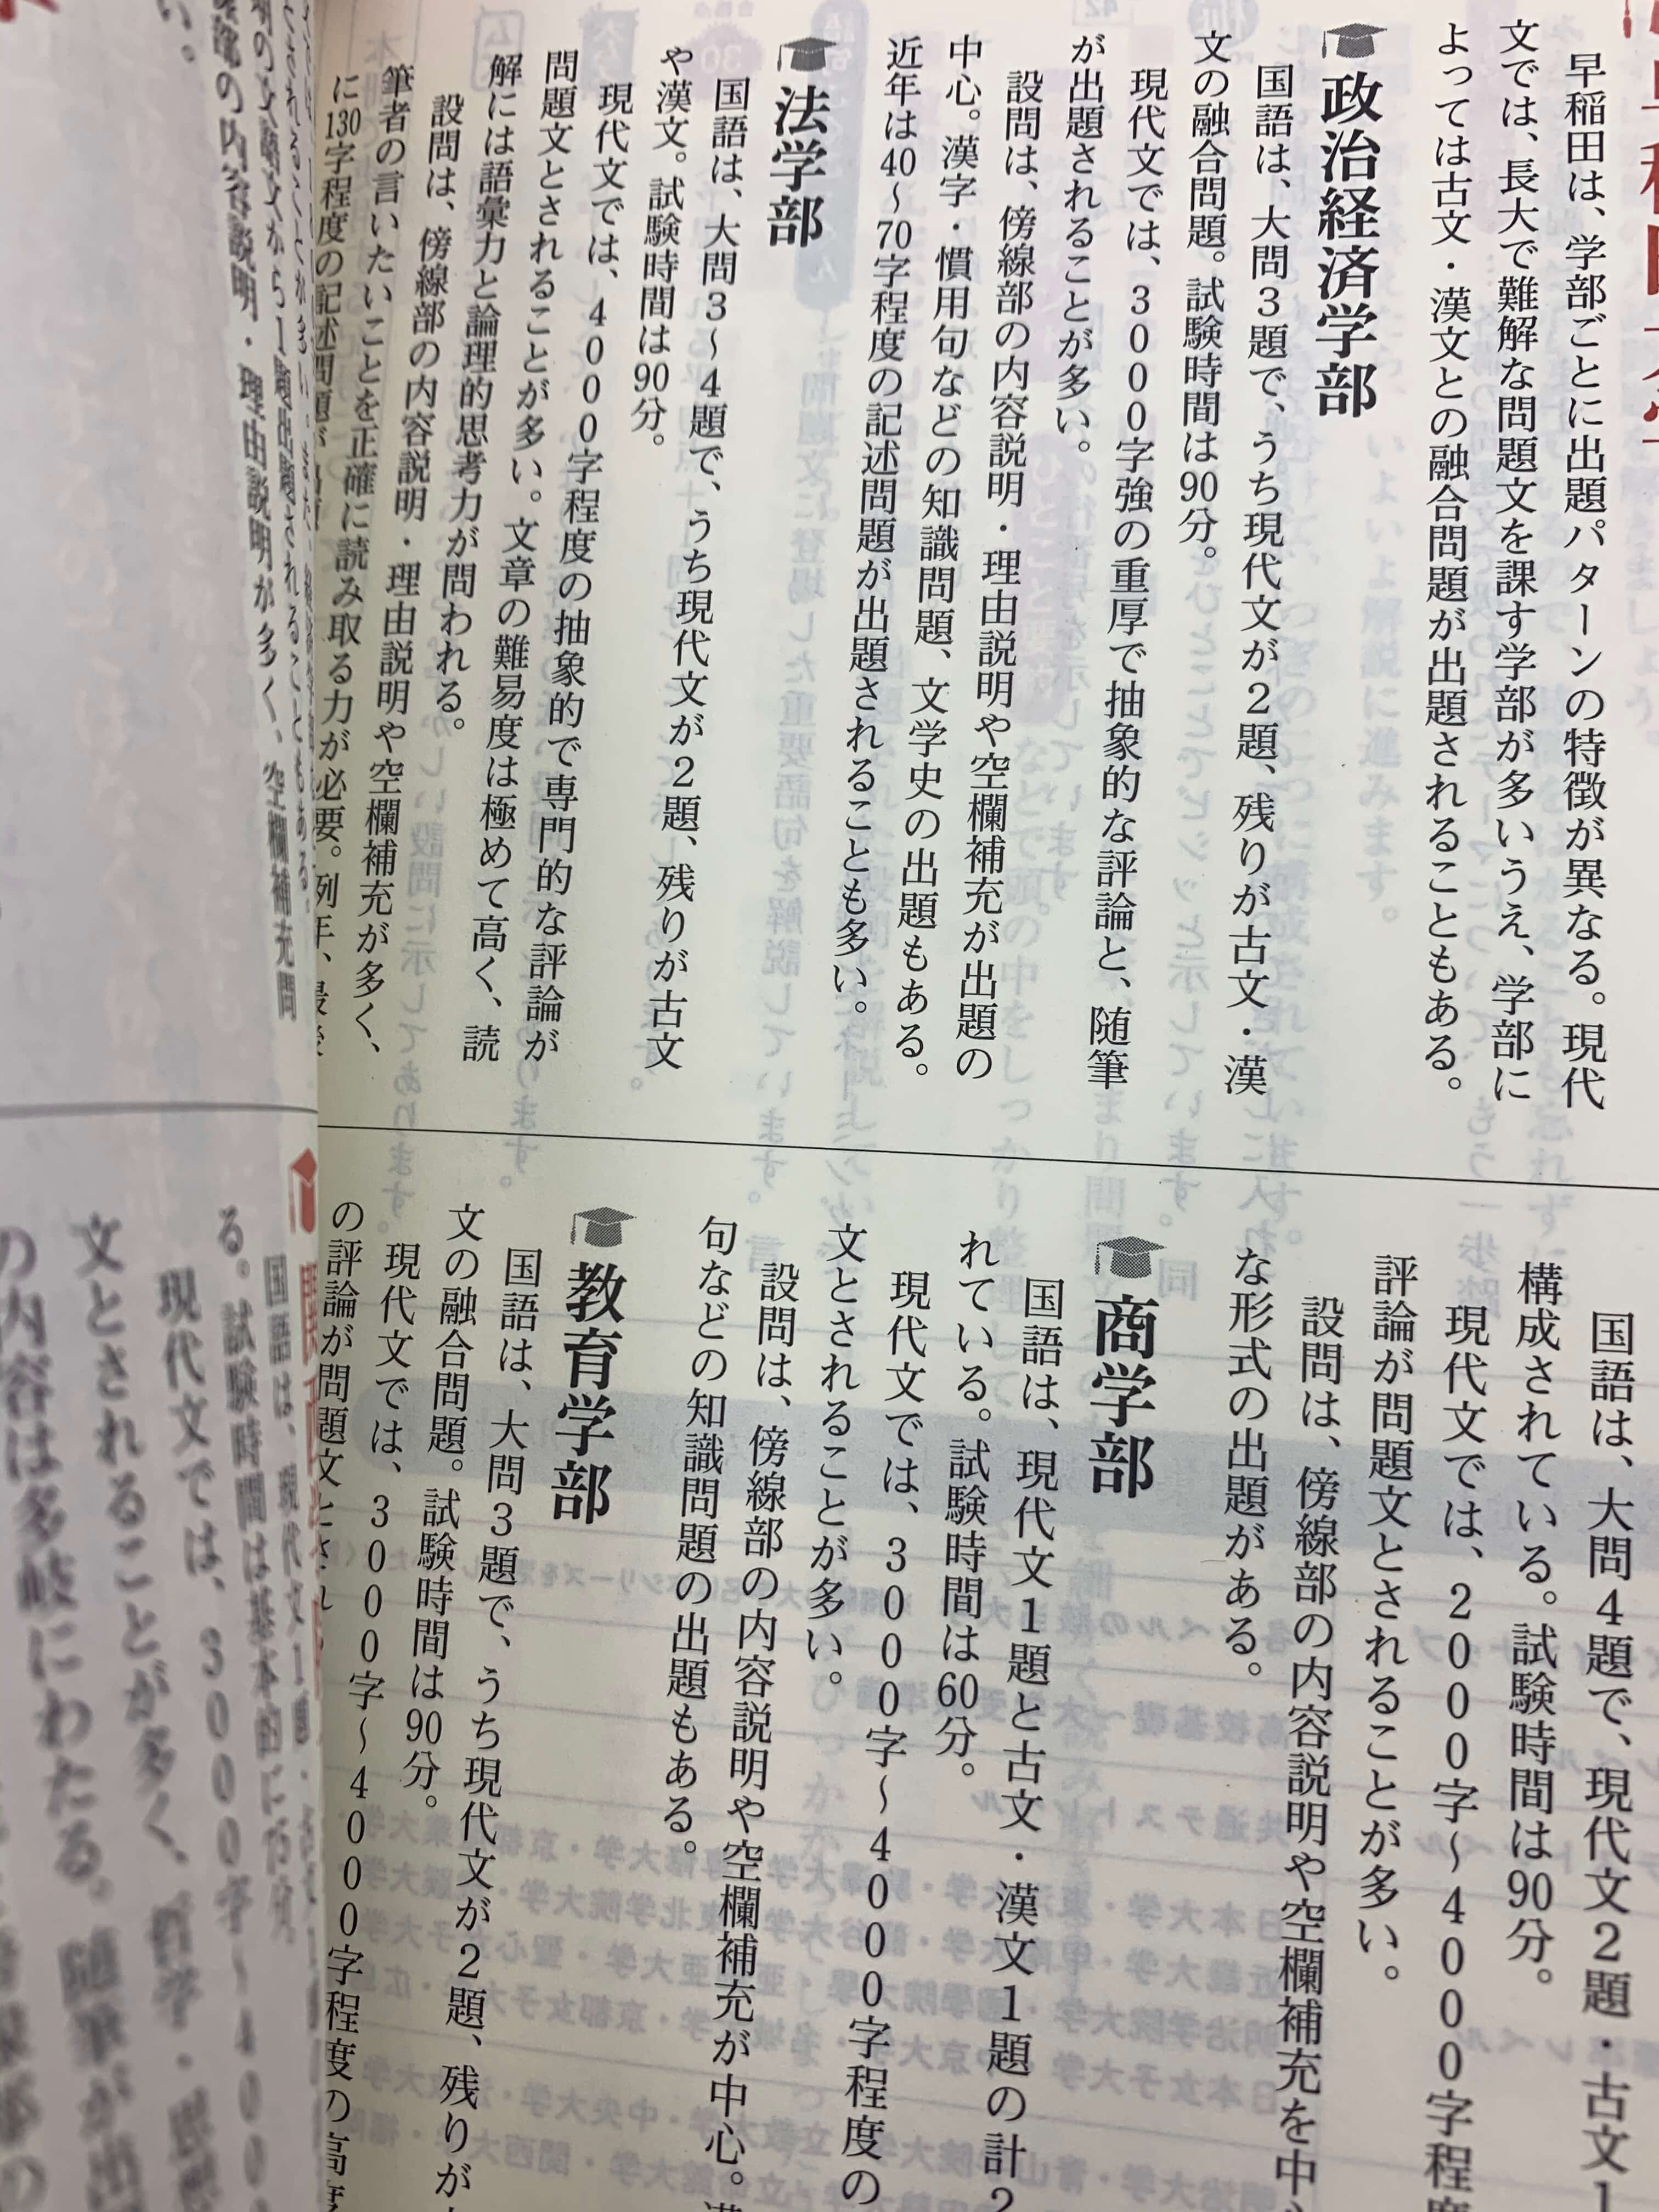 早稲田は、学部ごとに出題パターンの特徴が異なる。現代
文では、長大で難解な問題文を課す学部が多いうえ、学部に
よっては古文・漢文との融合問題が出題されることもある。
政治経済学部
国語は、大問3題で、うち現代文が2題、残りが古文・漢
文の融合問題。試験時間は90分。
現代文では、3000字強の重厚で抽象的な評論と、随筆
が出題されることが多い。
設問は、傍線部の内容説明・理由説明や空欄補充が出題の
中心。漢字・慣用句などの知識問題、文学史の出題もある。
近年は40〜70字程度の記述問題が出題されることも多い。
法学部
国語は、大問3〜4題で、うち現代文が2題、残りが古文
や漢文。試験時間は90分。
現代文では、4000字程度の抽象的で専門的な評論が
問題文とされることが多い。文章の難易度は極めて高く、読
解には語彙力と論理的思考力が問われる。
設問は、傍線部の内容説明・理由説明や空欄補充が多く、
筆者の言いたいことを正確に読み取る力が必要。例年、最後
に130字程度の記述問題が
国語は、大問4題で、現代文2題・古文1
構成されている。試験時間は90分。
現代文では、2000字〜4000字程度
評論が問題文とされることが多い。
設問は、傍線部の内容説明や空欄補充を中
な形式の出題がある。
商学部
国語は、現代文1題と古文・漢文1題の計2
れている。試験時間は60分。
現代文では、3000字〜4000字程度の
文とされることが多い。
設問は、傍線部の内容説明や空欄補充が中心。
句などの知識問題の出題もある。
教育学部
国語は、大問3題で、うち現代文が2題、残りが
文の融合問題。試験時間は90分。
現代文では、3000字〜4000字程度の高度
の評論が問題文とされ
の内容説明・理由説明が多く、空欄補充問
い。
国語は、現代文1題・
る。試験時間は基本的に75分。
現代文では、3000字〜400
文とされることが多く、哲学・思想
の内容は多岐にわたる。随筆が出